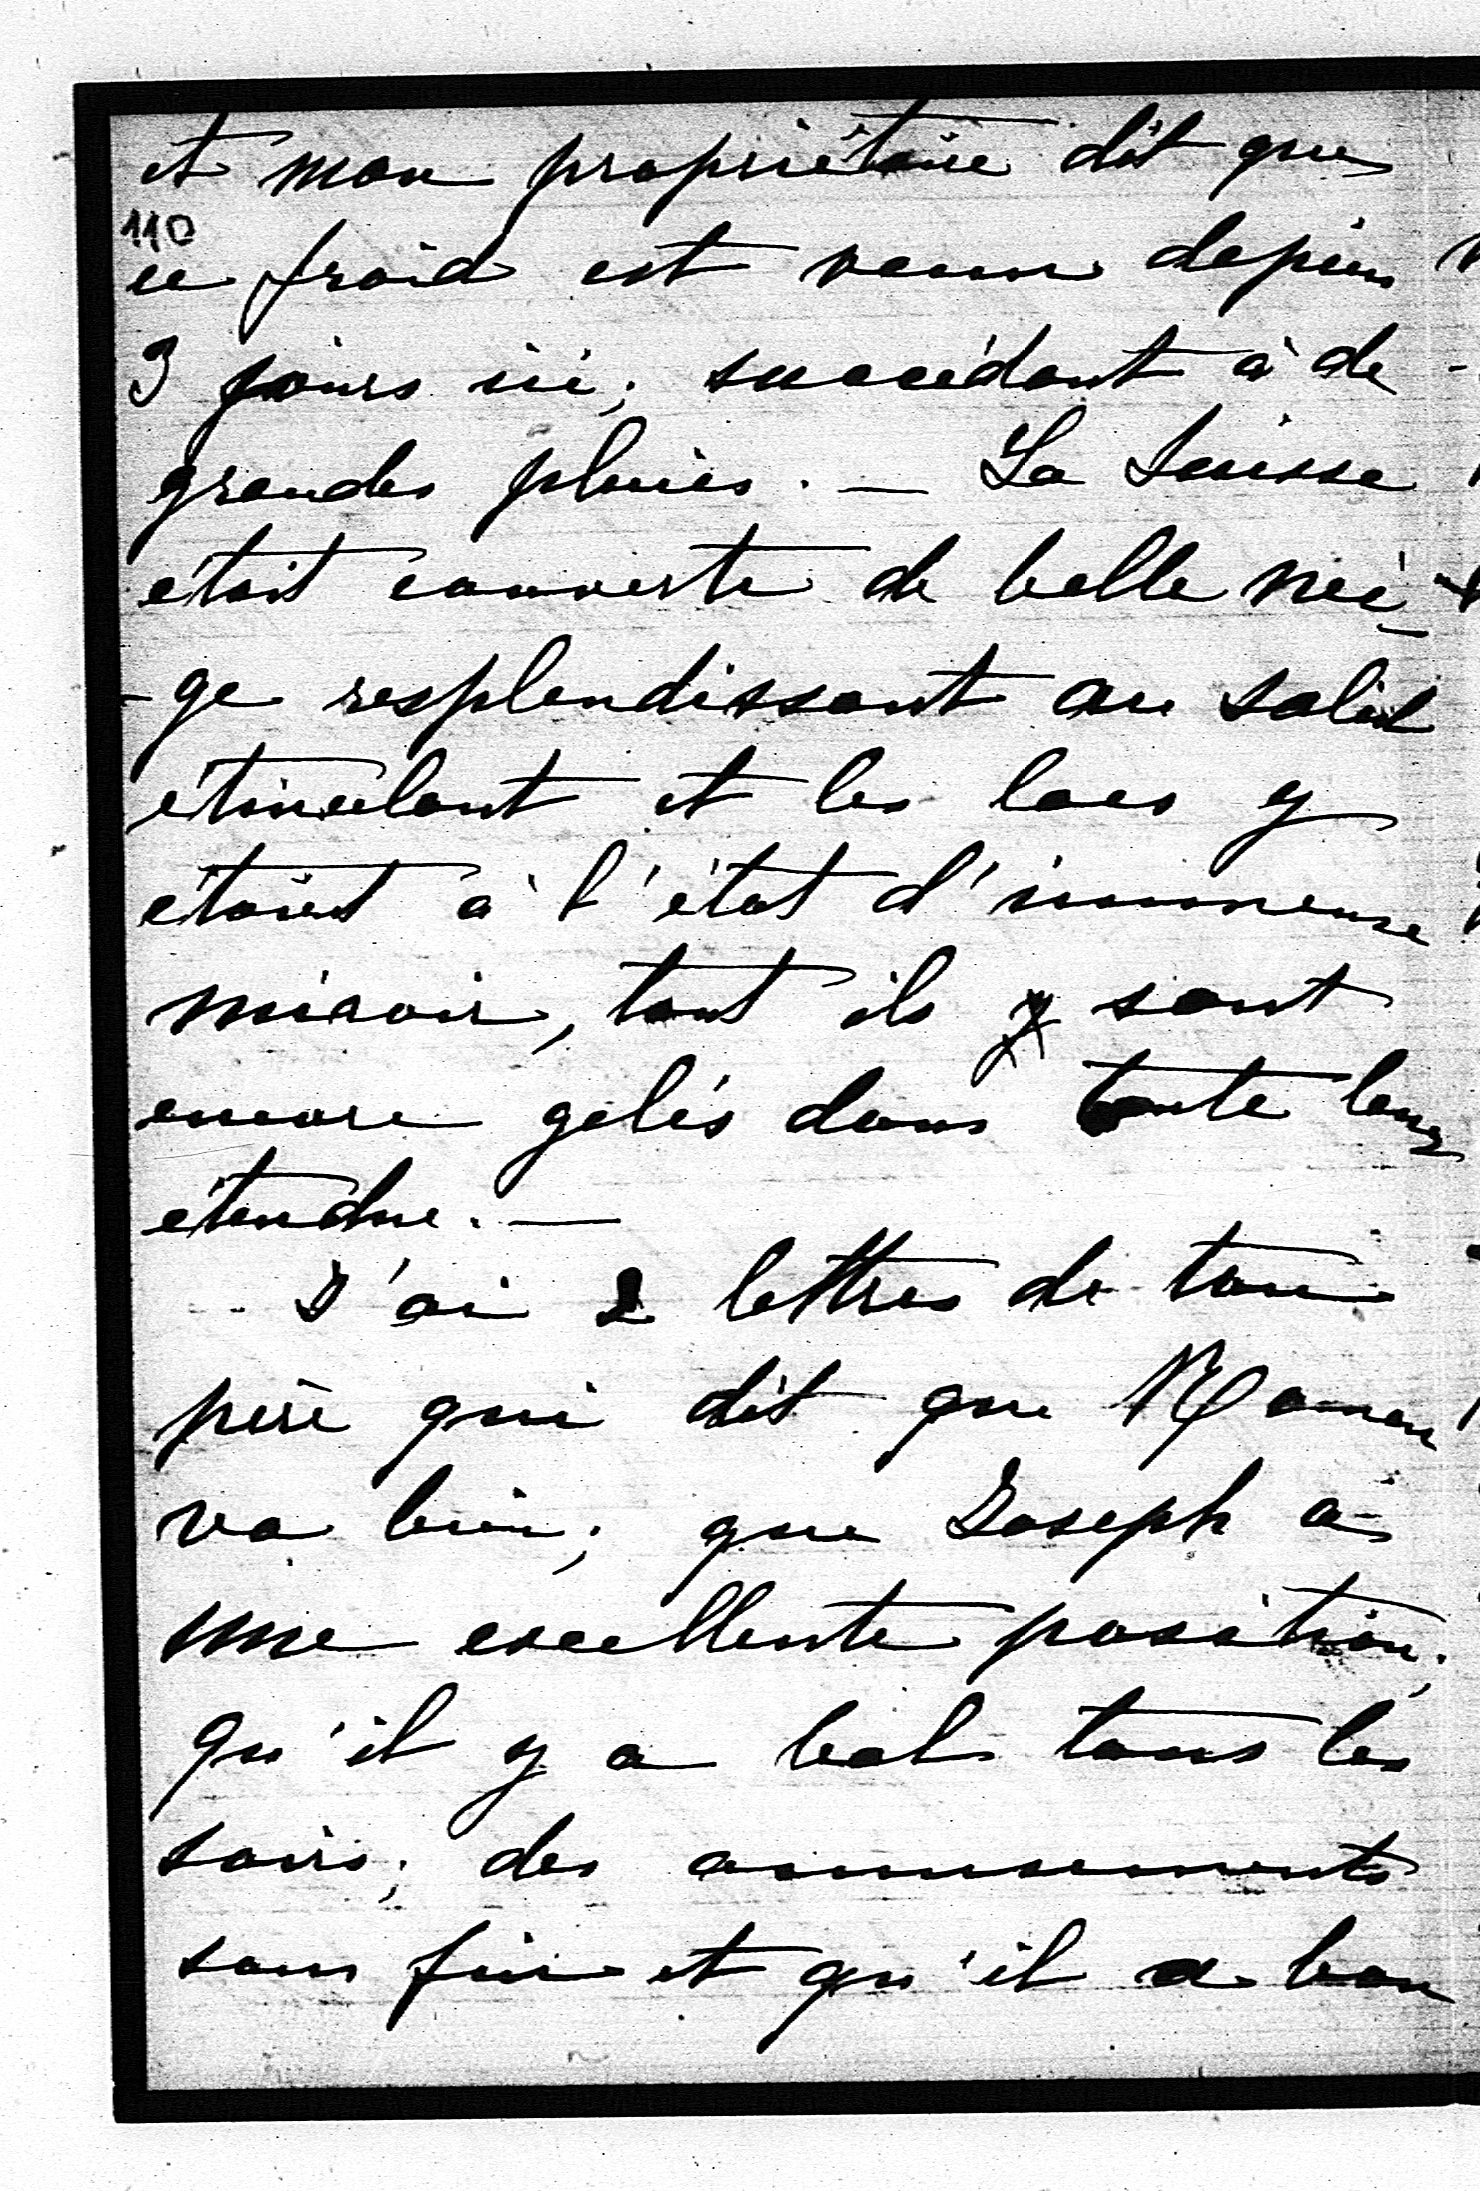 et mon propriétaire dit que
110
ce froid est venu depuis
3 jours ici; succédant à de
grandes pluies. — La Suisse
était couverte de belle nei-
-ge resplendissant au soleil
étincelant et les lacs y
étaient à l'état d'immense
miroir, tant ils y sont
encore gelés dans toute leur
étendue. —
J'ai 2 lettres de ton
père qui dit que Maman
va bien; que Joseph a
une excellente position;
qu'il y a bal tous les
soirs; des amusements
sans fin et qu'il a bon